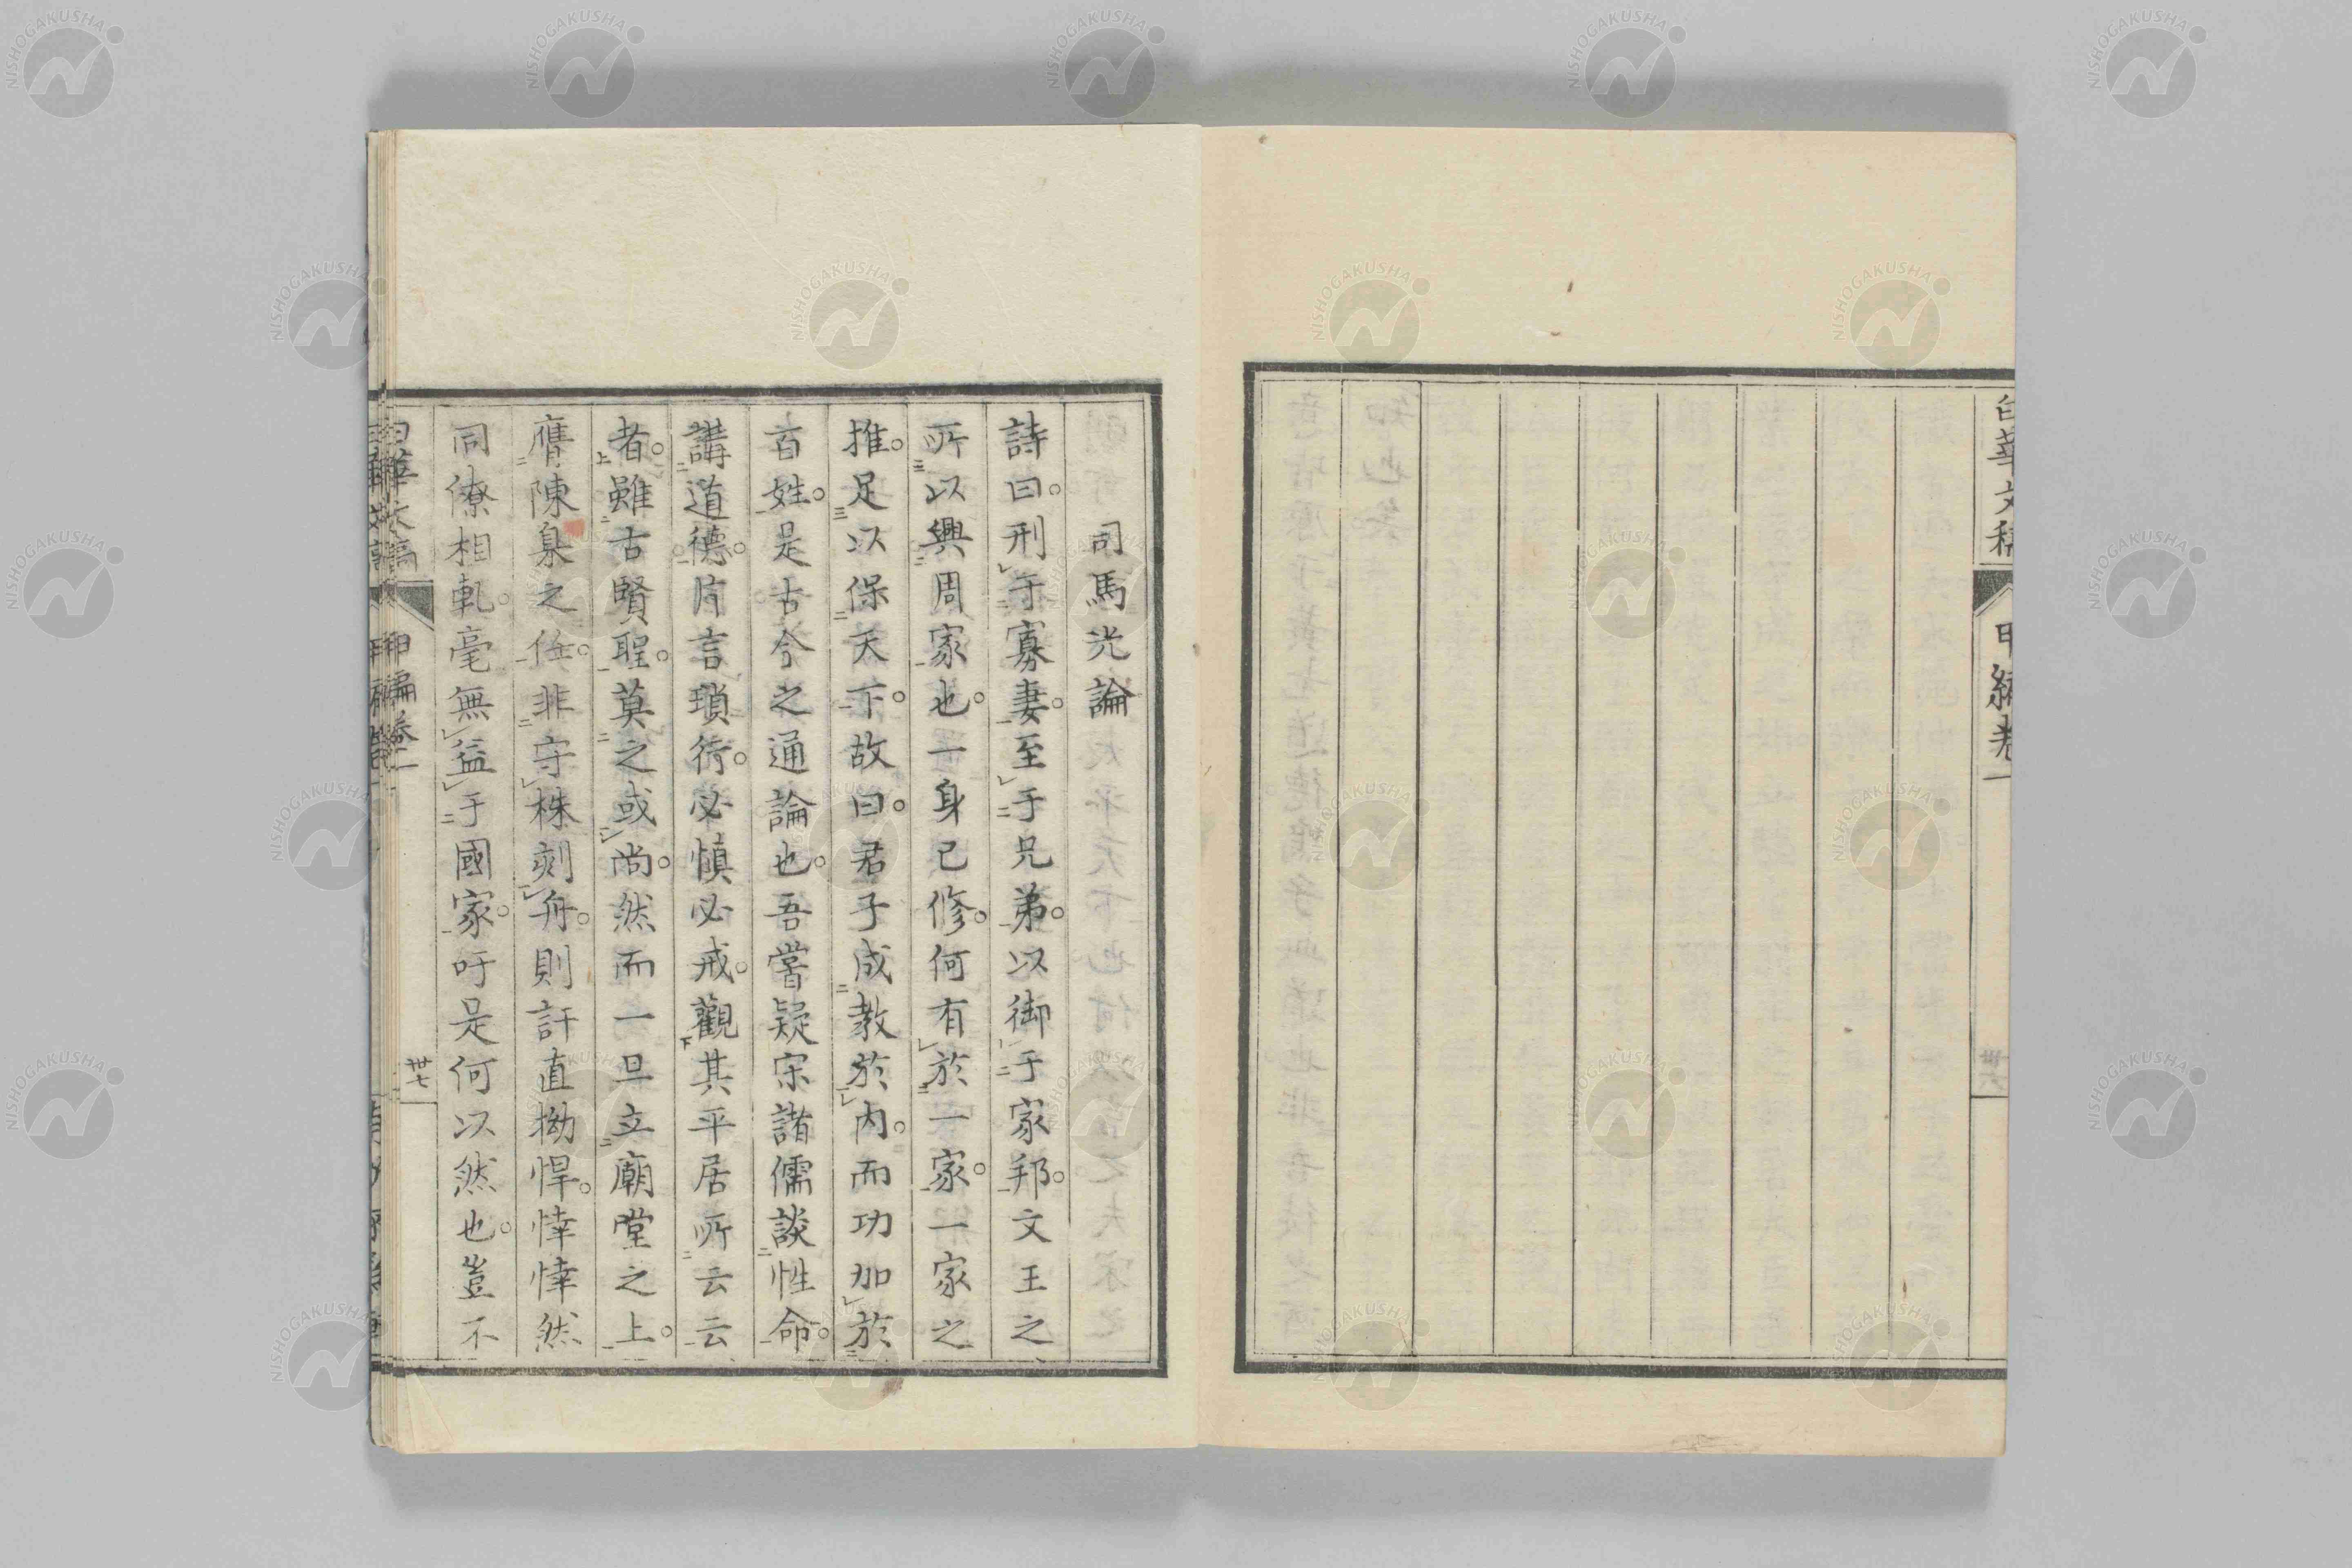 白華文稿
甲編卷一
卅六
司馬光論
詩曰。刑于寡妻。至于兄弟。以御于家邦。文王之
所以興周家也。一身已修。何有於一家。一家之
推。足以保天下。故曰。君子成教於内。而功加於
百姓。是古今之通論也。吾嘗疑宋諸儒談性命。
講道德。片言瑣行。必慎必戒。觀其平居所云云
者。雖古賢聖。莫之或尚。然而一旦立廟堂之上。
膺陳臬之任。非守株刻舟。則訐直拗悍。悻悻然
同僚相軋。毫無益于國家。吁是何以然也。豈不
白華文稿
甲編卷一
卅七
NISHOGAKUSHA